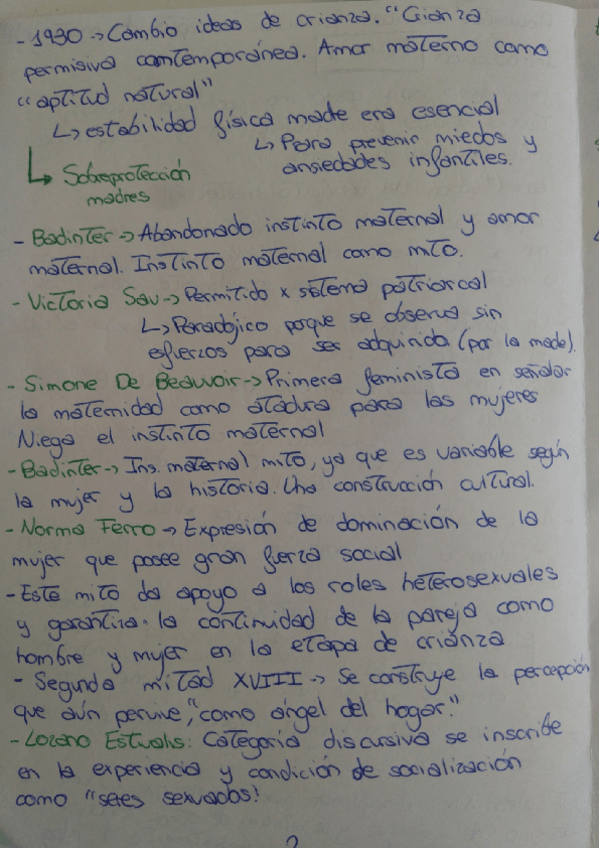 - 1930 → Cambio ideas de crianza. "Crianza
permisiva contemporánea. Amor materno como
"aptitud natural"
↳ estabilidad física madre era esencial
↳ Para prevenir miedos y
ansiedades infantiles.
↳ Sobreprotección
madres
- Badinter → Abandonado instinto maternal y amor
maternal. Instinto maternal como mito.
- Victoria Sau → Permitido x sistema patriarcal
↳ Paradójico porque se observa sin
esfuerzos para ser adquirida (por la madre).
- Simone De Beauvoir → Primera feminista en señalar
la maternidad como atadura para las mujeres
Niega el instinto maternal
- Badinter → Ins. maternal mito, ya que es variable según
la mujer y la historia. Una construcción cultural.
- Norma Ferro → Expresión de dominación de la
mujer que posee gran fuerza social
- Este mito da apoyo a los roles heterosexuales
y garantiza la continuidad de la pareja como
hombre y mujer en la etapa de crianza
- Segunda mitad XVIII → Se construye la percepción
que aún pervive, "como ángel del hogar."
- Lozano Estivalis: Categoría discursiva se inscribe
en la experiencia y condición de socialización
como "seres sexuados!
2